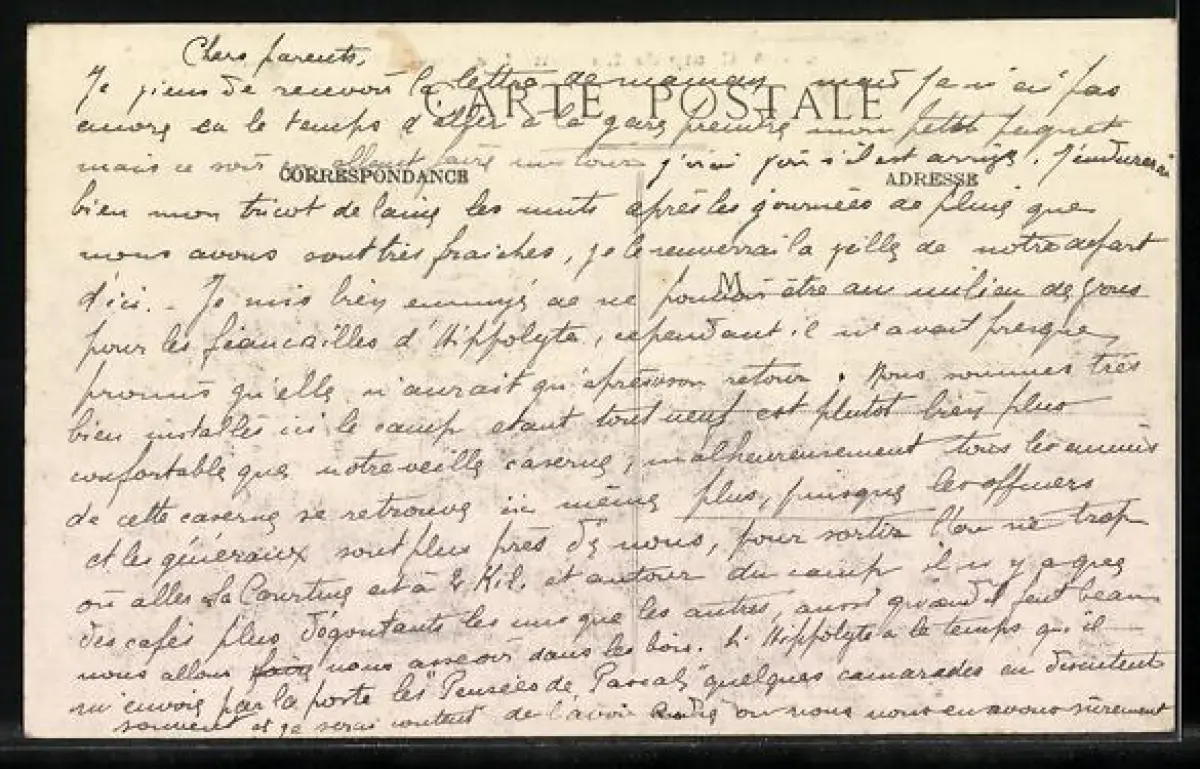 Chers parents,
Je viens de recevoir la lettre de maman mais je n'ai pas
CARTE POSTALE
encore eu le temps d'aller à la gare prendre mon petit paquet
mais ce soir en allant faire un tour j'irai voir s'il est arrivé. J'endurerai
CORRESPONDANCE
ADRESSE
bien mon tricot de laine les nuits après les journées de pluie que
nous avons sont très fraiches, je le renverrai la veille de notre départ
M
d'ici. - Je suis bien ennuyé de ne pouvoir être au milieu de vous
pour les fiancailles d'Hippolyte, cependant il m'avait presque
promis qu'elle n'aurait qu'après son retour. Nous sommes très
bien installés ici le camp étant tout neuf est plutot bien plus
confortable que notre veille caserne, malheureusement tous les ennuis
de cette caserne se retrouve ici même plus, puisque les officiers
et les généraux sont plus près de nous, pour sortir l'on ne trop
où aller La Courtine est à 2 Kil. et autour du camp il n'y a que
des cafés plus dégoutants les uns que les autres, aussi quand il fait beau
nous allons nous asseoir dans les bois. Si Hippolyte a le temps qu'il
m'envoie par la poste les "Pensées de Pascal" quelques camarades en discutent
souvent et je serai content de l'avoir nous nous en avons sûrement